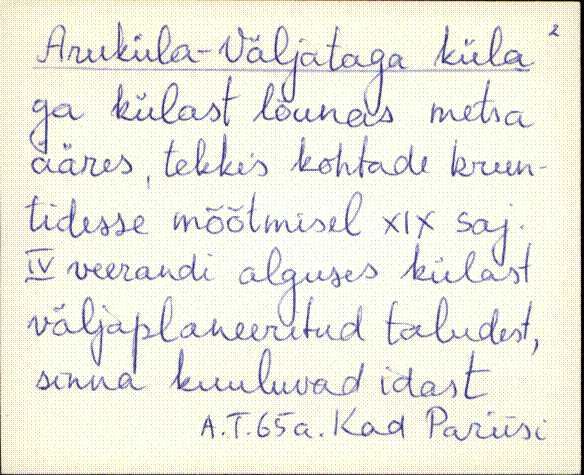 Aruküla-Väljataga küla 2
ga külast lõunas metsa
ääres, tekkis kohtade krun-
tidesse mõõtmisel XIX saj.
IV veerandi alguses külast
väljaplaneeritud taludest,
sinna kuuluvad idast
A.T. 65a. Kad Pariisi